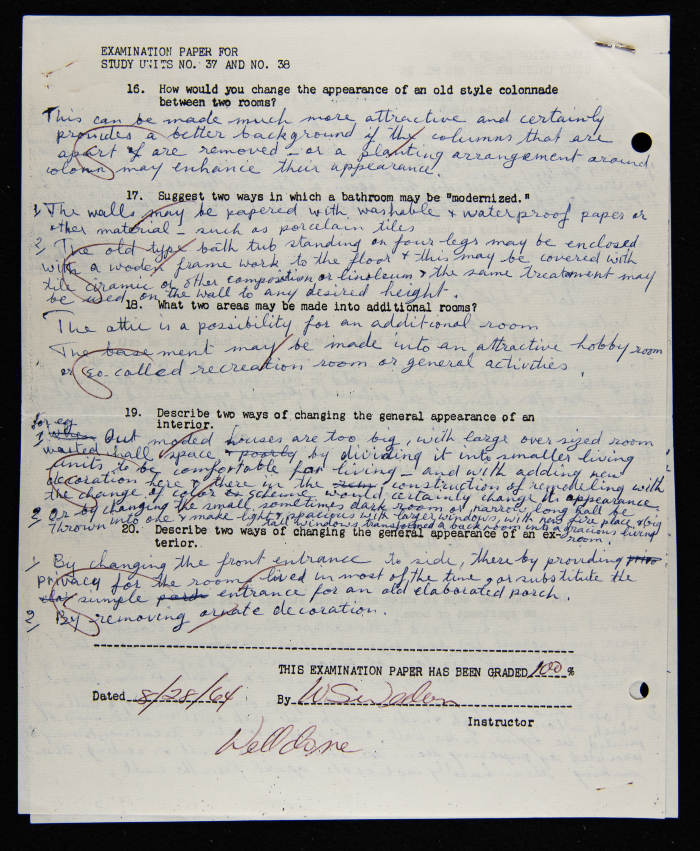 EXAMINATION PAPER FOR
STUDY UNITS NO. 37 AND NO. 38
16. How would you change the appearance of an old style colonnade
between two rooms?
This can be made much more attractive and certainly
provides a better background if the columns that are
apart of are removed - or a planting arrangement around
colomn may enhance their appearance.
17. Suggest two ways in which a bathroom may be "modernized."
1, The walls may be papered with washable & waterproof paper or
other material - such as porcelain tiles
2, The old type bath tub standing on four legs may be enclosed
with a wooden frame work to the floor & this may be covered with
tile ciramic or other composition or linoleum & the same treatment may
be used on the wall to any desired height.
18. What two areas may be made into additional rooms?
The attic is a possibility for an additional room
The basement may be made into an attractive hobby room
or so-called recreation room or general activities.
19. Describe two ways of changing the general appearance of an
interior.
for eg
1, when Out moded houses are too big, with large over sized room
wasted hall space, & poorly by dividing it into smaller living
units to be comfortable for living - and with adding new
decoration here & there in the construction of remodeling with
the change of color scheme would certainly change it appearance
2, Or by changing the small, sometimes dark room or narrow long hall be
thrown into one & make light & spacious with larger windows, with new fire place & big
tall windows transformed a back room into a gracious living
room.
20. Describe two ways of changing the general appearance of an ex-
terior.
1, By changing the front entrance to side, there by providing
privacy for the rooms lived in most of the time, or substitute the
simple porch entrance for an old elaborated porch.
2, By removing ornate decoration.
THIS EXAMINATION PAPER HAS BEEN GRADED 100 %
Dated 8/28/64 By
Instructor
Well done